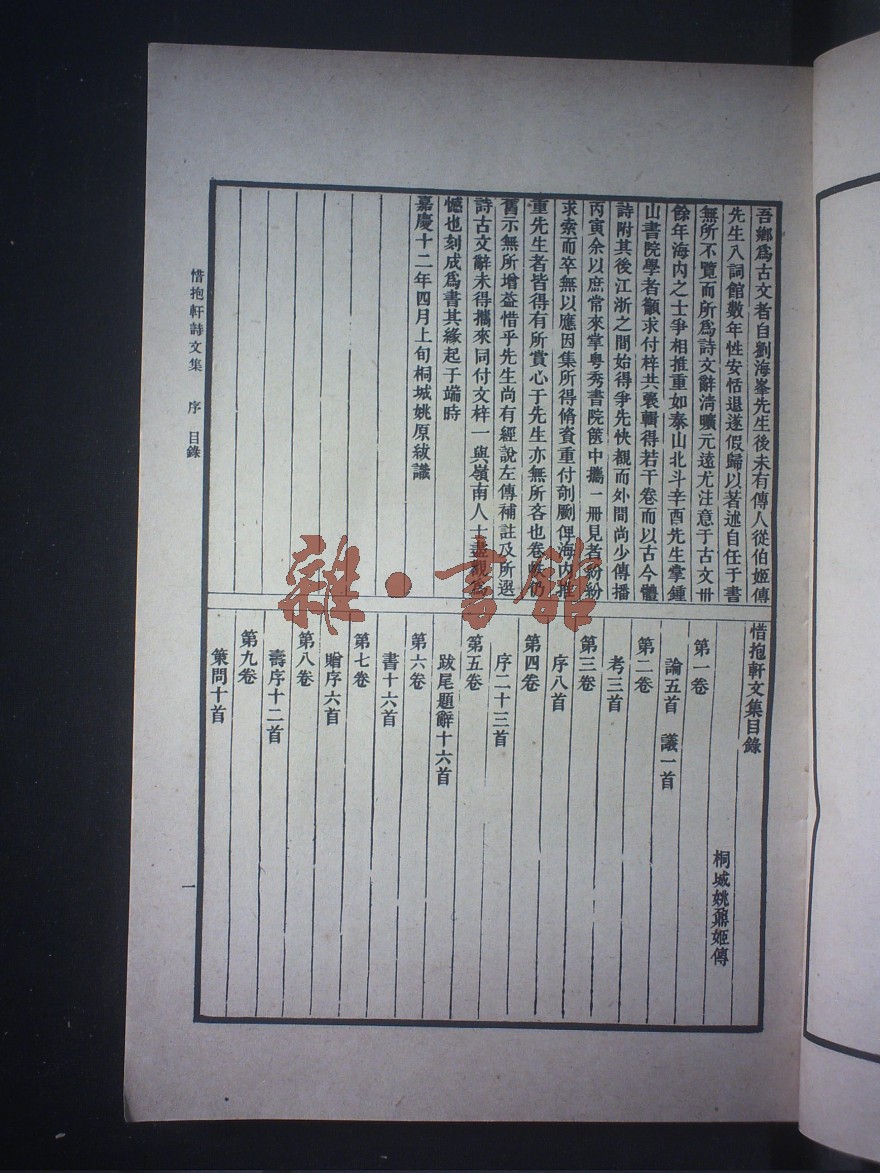 吾鄉爲古文者自劉海峯先生後未有傳人從伯姬傳
先生入詞館數年性安恬退遂假歸以著述自任于書
無所不覽而所爲詩文辭清曠元遠尤注意于古文卅
餘年海內之士爭相推重如泰山北斗辛酉先生掌鍾
山書院學者籲求付梓共裒輯得若干卷而以古今體
詩附其後江浙之間始得爭先快覩而外間尚少傳播
丙寅余以庶常來掌粤秀書院篋中攜一冊見者紛紛
求索而卒無以應因集所得脩資重付剞劂俾海內推
重先生者皆得有所賞心于先生亦無所吝也卷帙仍
舊示無所增益惜乎先生尚有經說左傳補註及所選
詩古文辭未得攜來同付文梓一與嶺南人士盡觀爲
憾也刻成爲書其緣起于端時
嘉慶十二年四月上旬桐城姚原紱識
惜抱軒文集目錄
桐城姚鼐姬傳
第一卷
論五首 議一首
第二卷
考三首
第三卷
序八首
第四卷
序二十三首
第五卷
跋尾題辭十六首
第六卷
書十六首
第七卷
贈序六首
第八卷
壽序十二首
第九卷
策問十首
惜抱軒詩文集 序 目錄
一
雜·書館